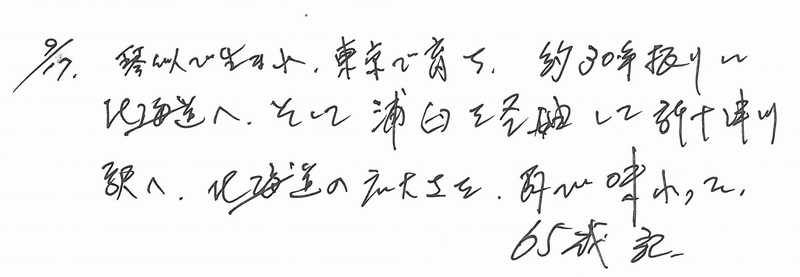 9/17. 琴似で生まれ、東京で育ち、約30年振りに
北海道へ、そして浦臼を経由して新十津川
駅へ、北海道の広大さを、肌で味わって、
65歳 記